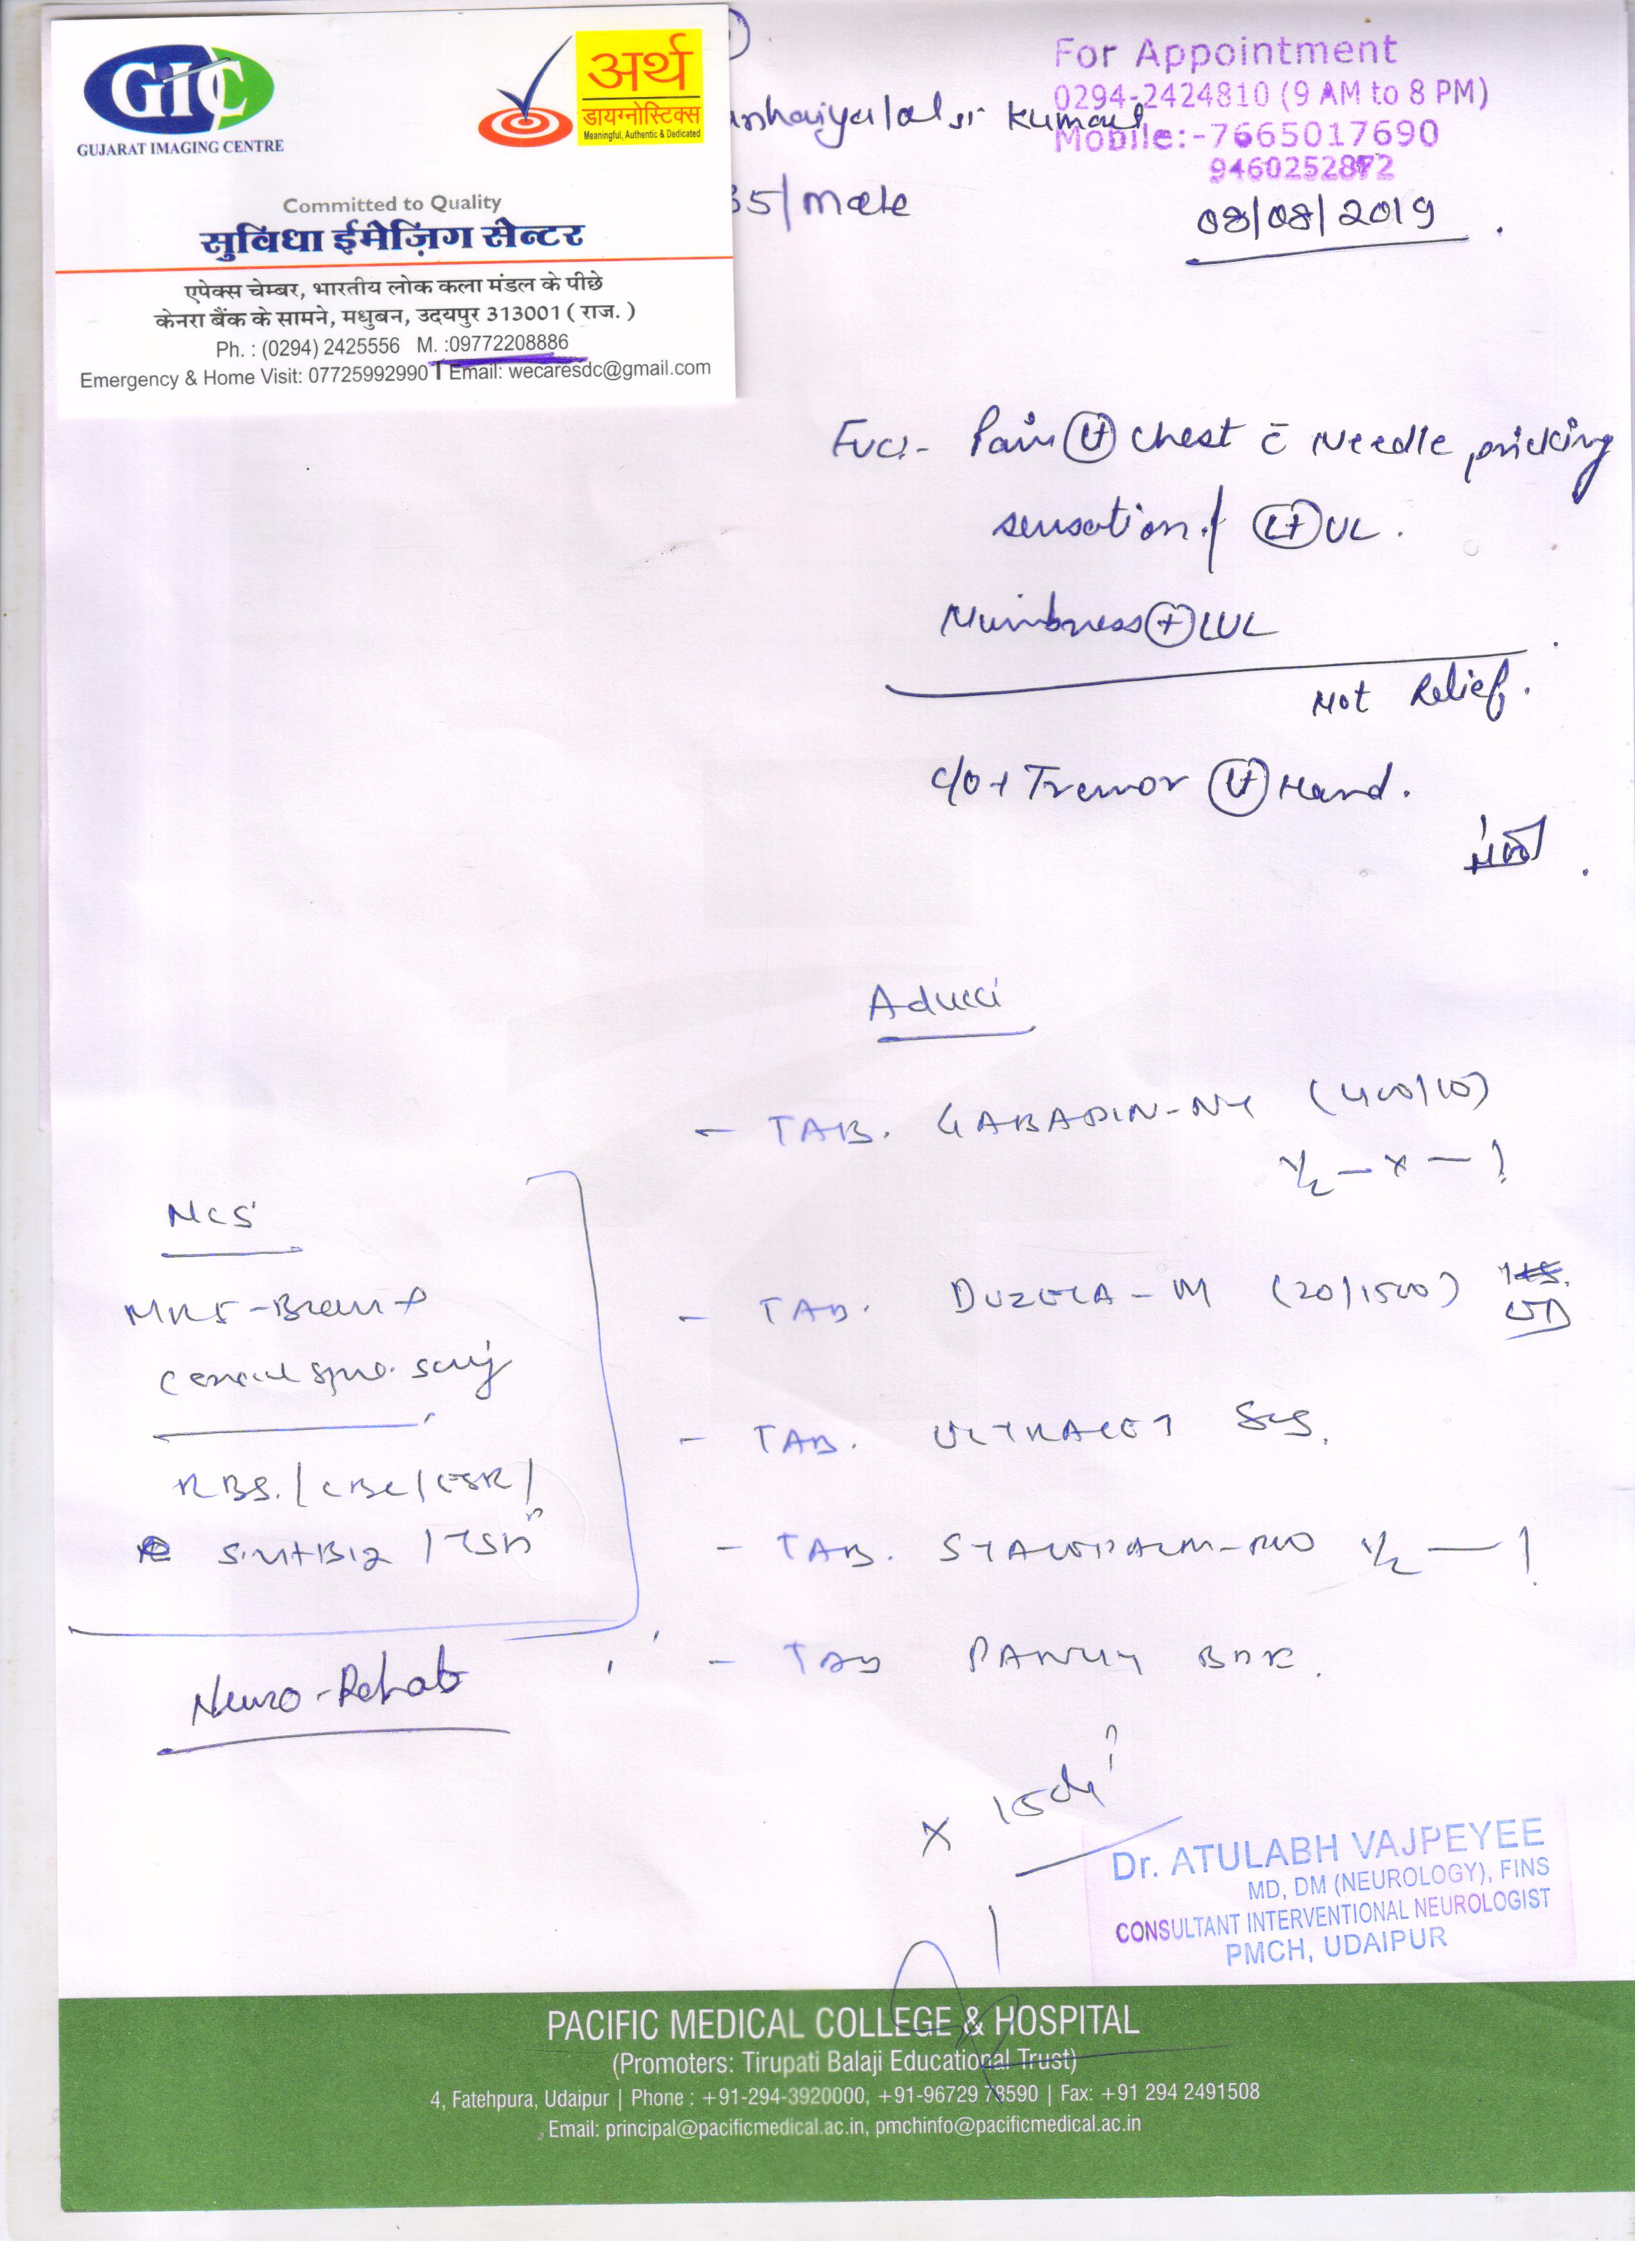 GIC
GUJARAT IMAGING CENTRE
अर्थ
डायग्नोस्टिक्स
Meaningful, Authentic & Dedicated
Committed to Quality
सुविधा ईमेज़िंग सेन्टर
एपेक्स चेम्बर, भारतीय लोक कला मंडल के पीछे
केनरा बैंक के सामने, मधुबन, उदयपुर 313001 ( राज. )
Ph. : (0294) 2425556 M. :09772208886
Emergency & Home Visit: 07725992990 Email: wecaresdc@gmail.com
For Appointment
0294-2424810 (9 AM to 8 PM)
Mobile:-7665017690
Kumar
35/Male
08/08/2019
Pain Lt chest c̄ Needle pricking
sensation Lt UL.
Numbness + LUL
Not Relief.
c/o + Tremor Lt Hand.
- TAB. GABAPIN-NT (400/10)
1/2 - x - 1
- TAB. DUZELA-M (20/1500) OD
- TAB. ULTRACET SOS.
- TAB. 1/2 - 1
- TAB BBF.
x 15
NCS
MRI-Brain +
cervical spine
RBS / CBC / ESR /
S.Vit B12 / TSH
Neuro-Rehab
Dr. ATULABH VAJPEYEE
MD, DM (NEUROLOGY), FINS
CONSULTANT INTERVENTIONAL NEUROLOGIST
PMCH, UDAIPUR
PACIFIC MEDICAL COLLEGE & HOSPITAL
(Promoters: Tirupati Balaji Educational Trust)
4, Fatehpura, Udaipur | Phone : +91-294-3920000, +91-96729 78590 | Fax: +91 294 2491508
Email: principal@pacificmedical.ac.in, pmchinfo@pacificmedical.ac.in